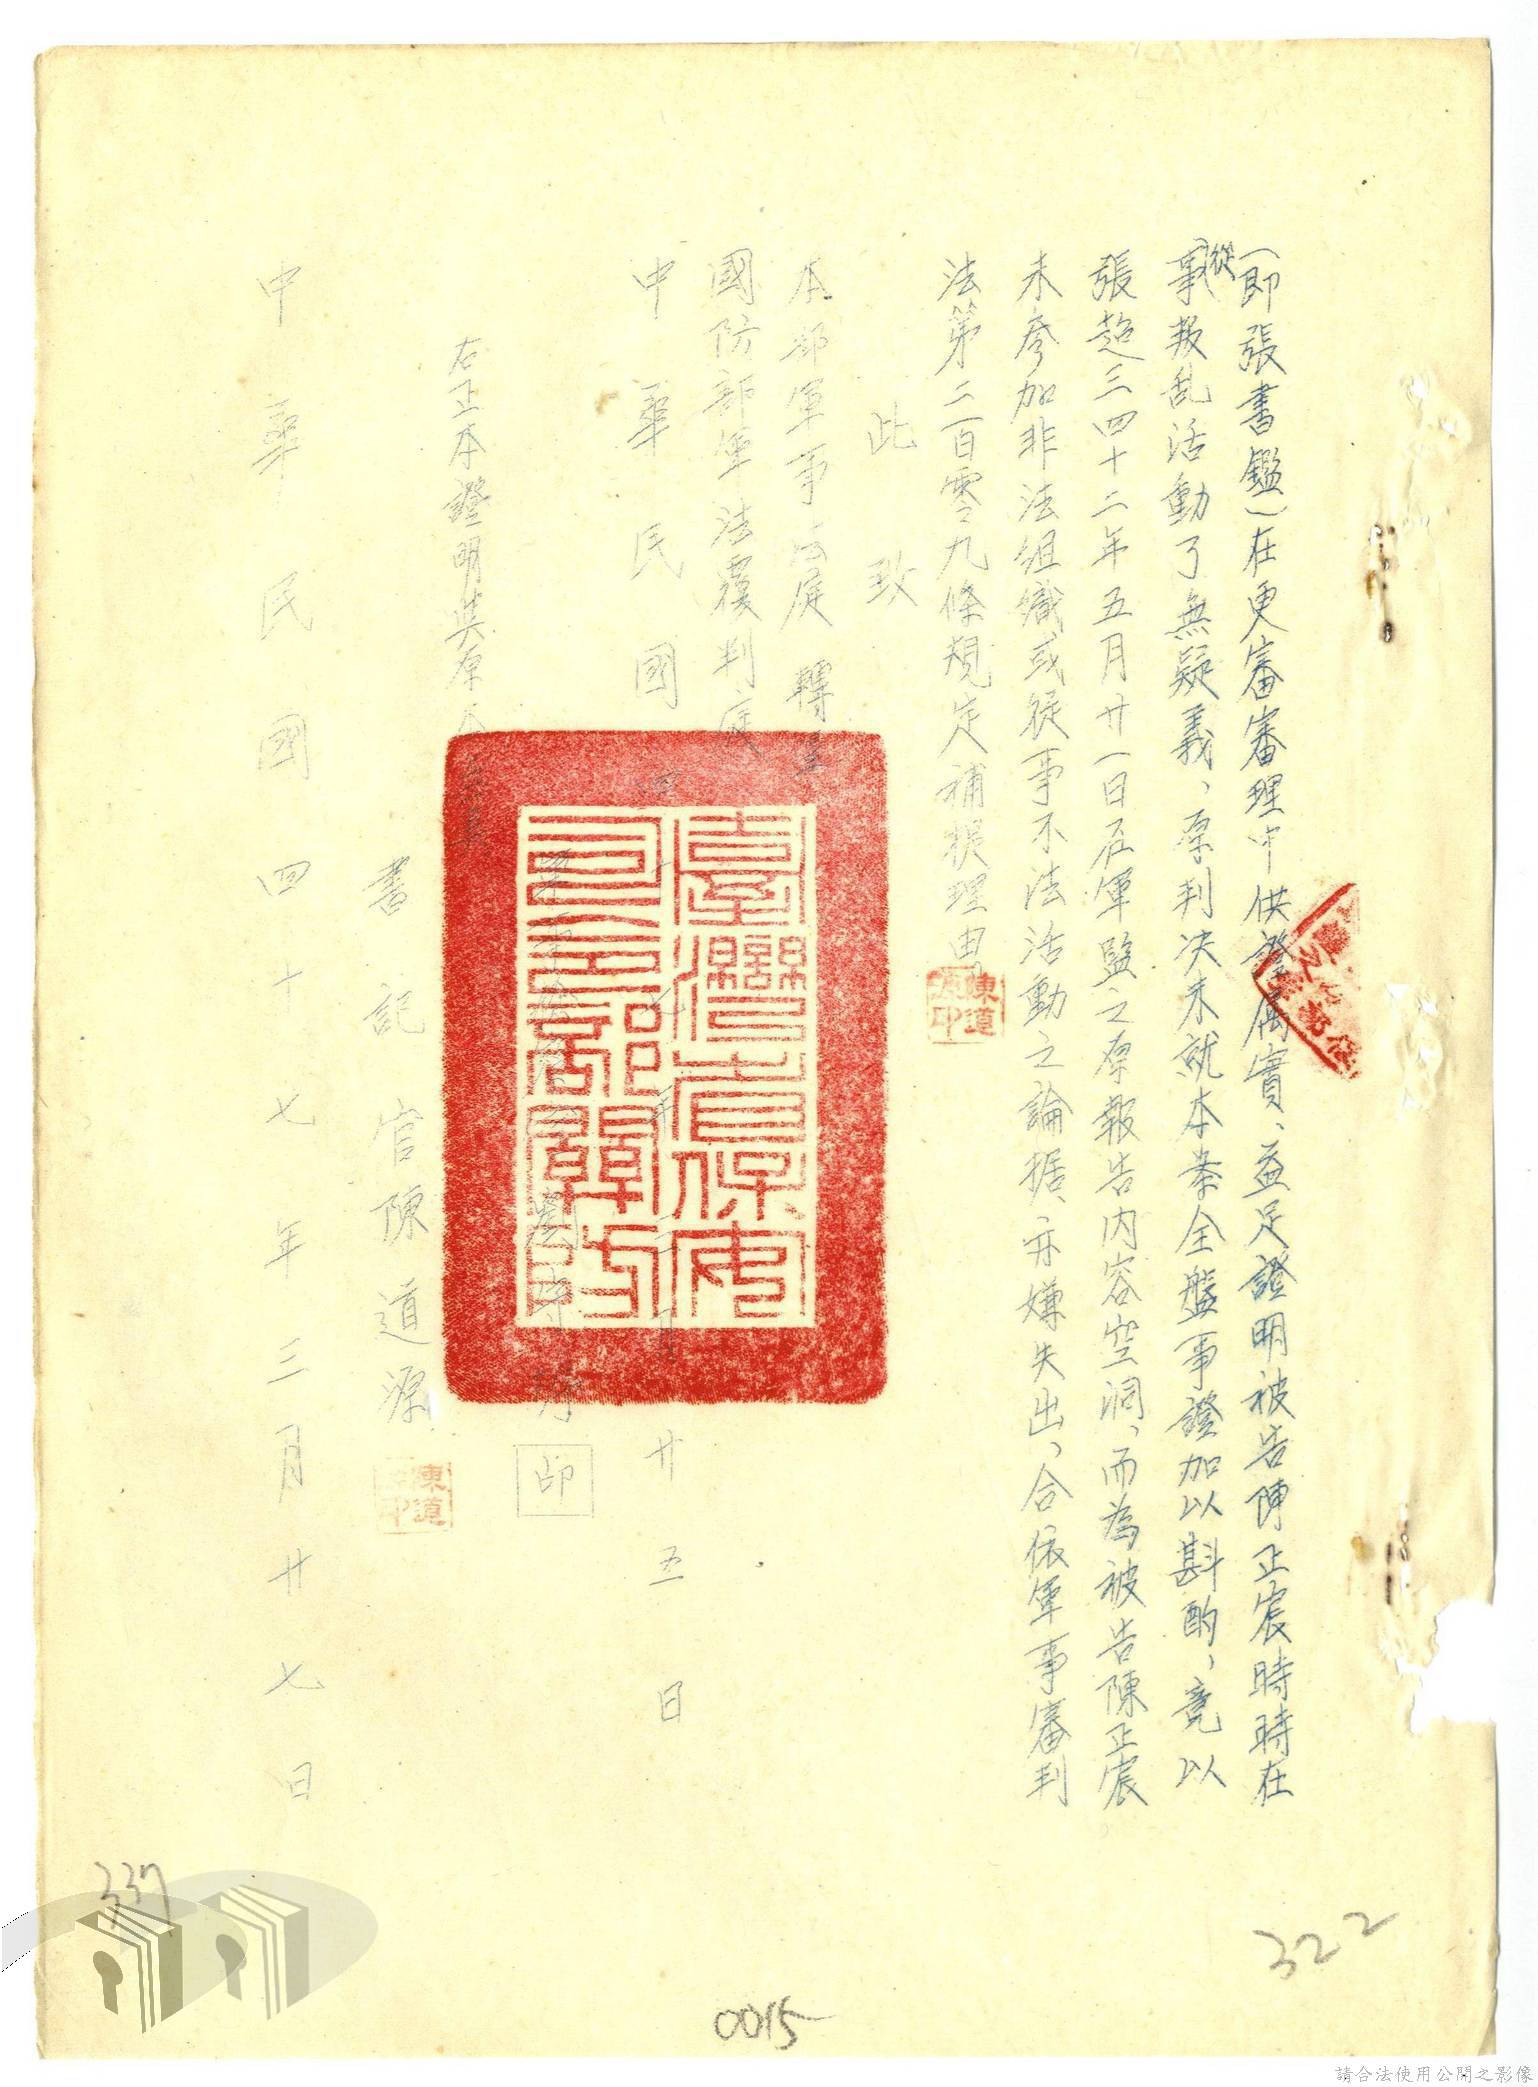 (即張書鑑)在更審審理中供證屬實、益足證明被告陳正宸時時在
從事叛乱活動了無疑義、原判決未就本案全盤事證加以斟酌、竟以
張超三四十二年五月廿一日在軍監之原報告内容空洞、而為被告陳正宸
未參加非法組織或從事不法活動之論据、亦嫌失出、合依軍事審判
法第二百零九條規定補提理由。
陳道源印
此致
本部軍事法庭 轉呈
國防部軍法覆判庭
中華民國四十七年三月廿五日
臺灣省保安司令部關防
印
右正本證明與原本無異
書記官陳道源
陳道源印
中華民國四十七年三月廿七日
337
322
0015
請合法使用公開之影像